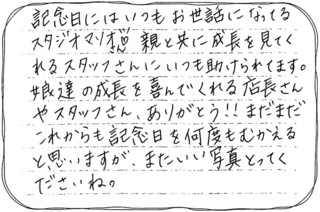 記念日にはいつもお世話になってる
スタジオマリオ♡ 親と共に成長を見てく
れるスタッフさんにいつも助けられてます。
娘達の成長を喜んでくれる店長さん
やスタッフさん、ありがとう!! まだまだ
これからも記念日を何度もむかえる
と思いますが、またいい写真とってく
ださいね。